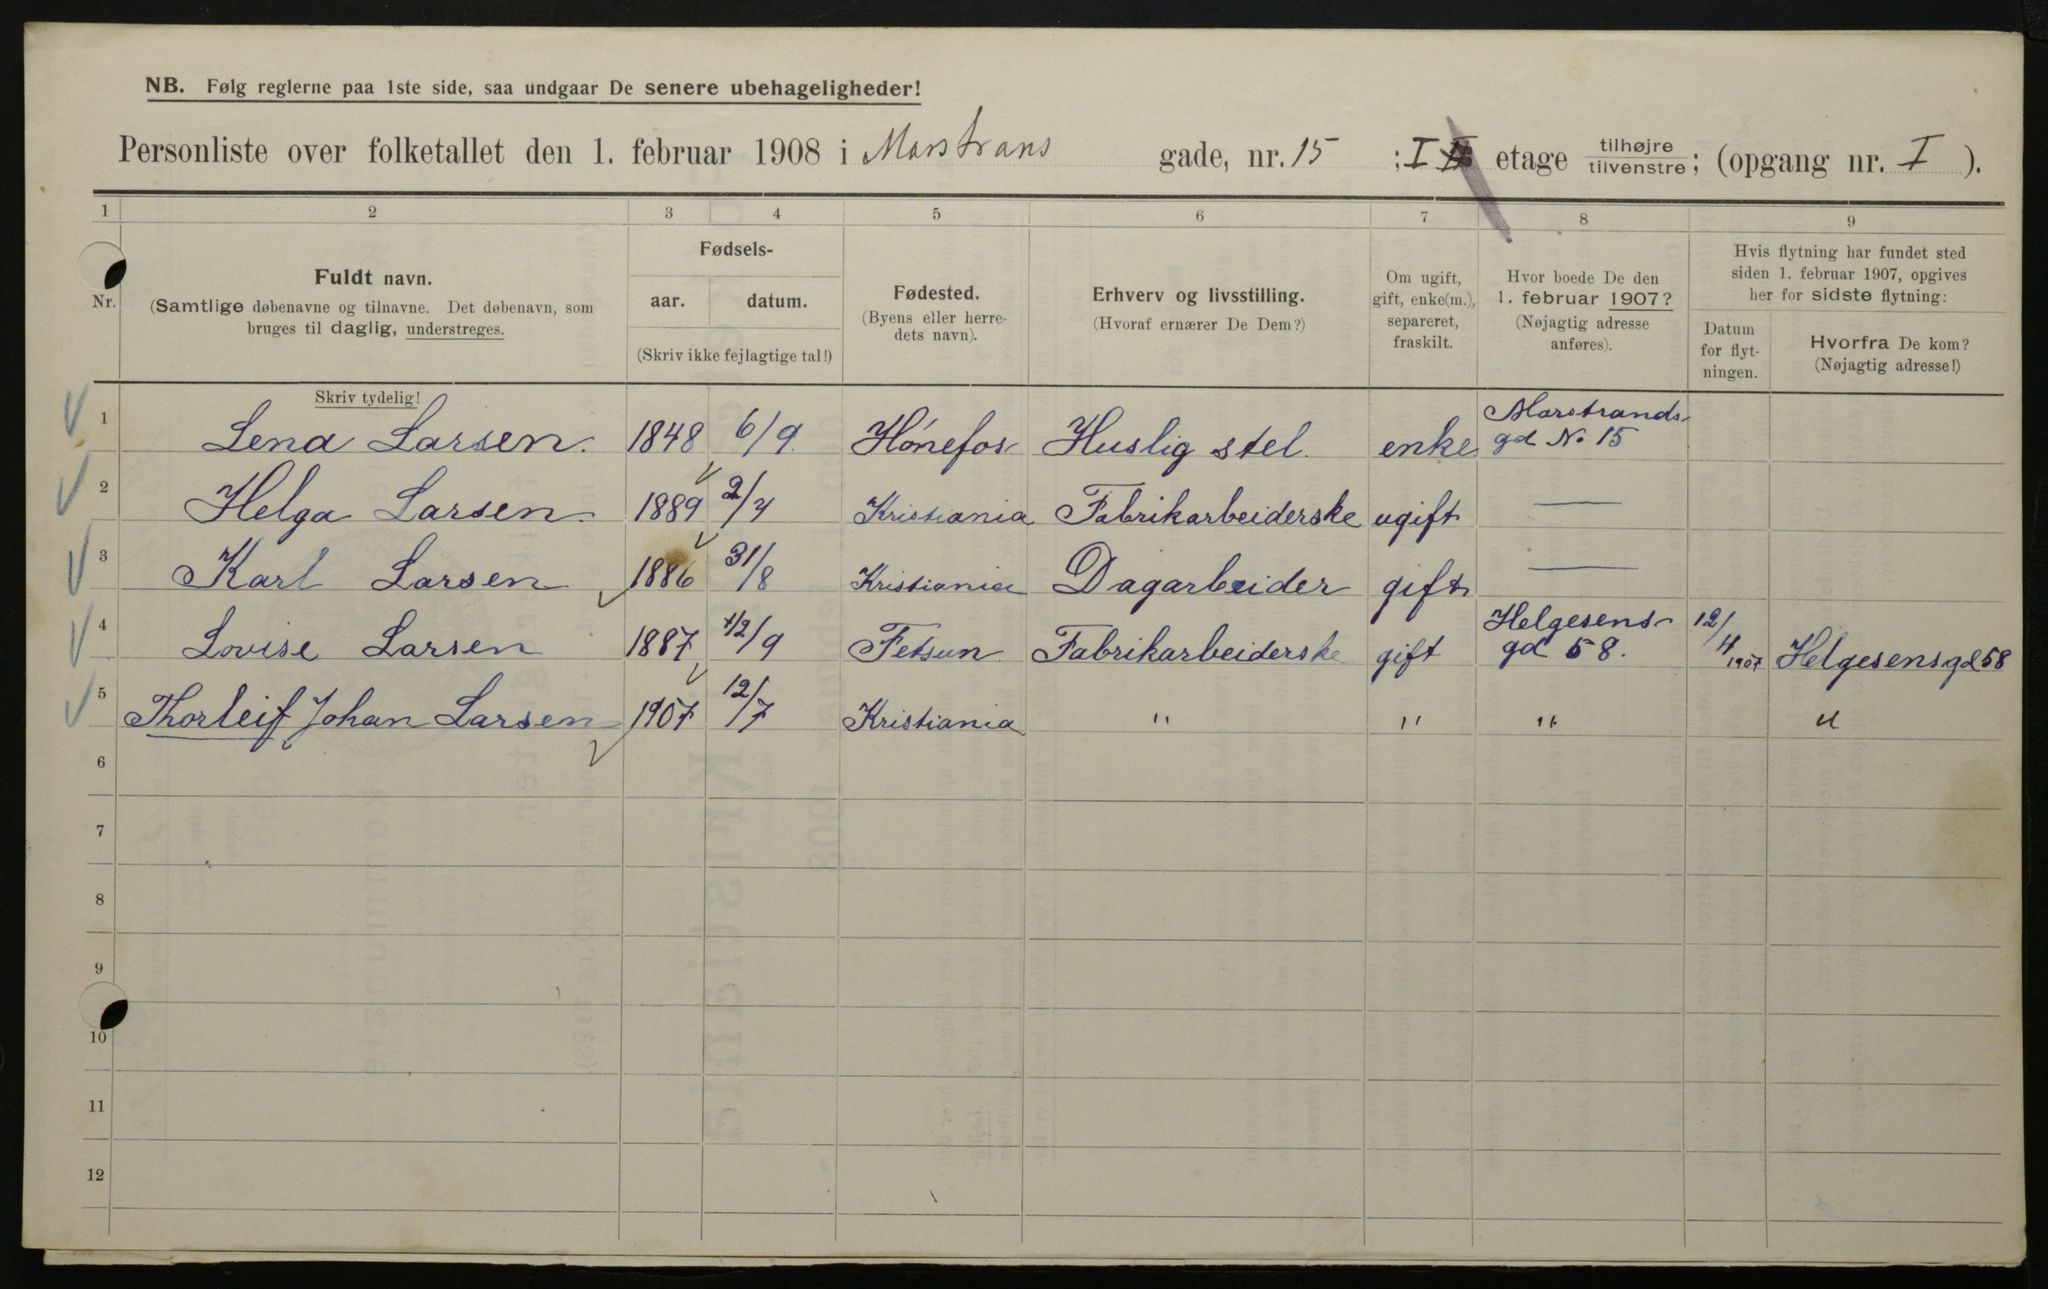 NB. Følg reglerne paa 1ste side, saa undgaar De senere ubehageligheder!
Personliste over folketallet den 1. februar 1908 i Marstrans gade, nr. 15 ; I etage tilhøjre/tilvenstre; (opgang nr. I ).
1 2 3 4 5 6 7 8 9
Nr.
Fuldt navn.
(Samtlige døbenavne og tilnavne. Det døbenavn, som
bruges til daglig, understreges.
Fødsels-
aar. datum.
(Skriv ikke fejlagtige tal!)
Fødested.
(Byens eller herre-
dets navn).
Erhverv og livsstilling.
(Hvoraf ernærer De Dem?)
Om ugift,
gift, enke(m.),
separeret,
fraskilt.
Hvor boede De den
1. februar 1907?
(Nøjagtig adresse
anføres).
Hvis flytning har fundet sted
siden 1. februar 1907, opgives
her for sidste flytning:
Datum
for flyt-
ningen.
Hvorfra De kom?
(Nøjagtig adresse!)
Skriv tydelig!
1 Lena Larsen. 1848 6/9 Hönefos Huslig stel. enke Marstrands-
gd No 15
2 Helga Larsen 1889 2/4 Kristiania Fabrikarbeiderske ugift —
3 Karl Larsen 1886 31/8 Kristiania Dagarbeider gift —
4 Lovise Larsen 1887 12/9 Fetsun Fabrikarbeiderske gift Helgesens-
gd 58. 12/4 1907 Helgesensgd 58
5 Thorleif Johan Larsen 1907 12/7 Kristiania " " " "
6
7
8
9
10
11
12